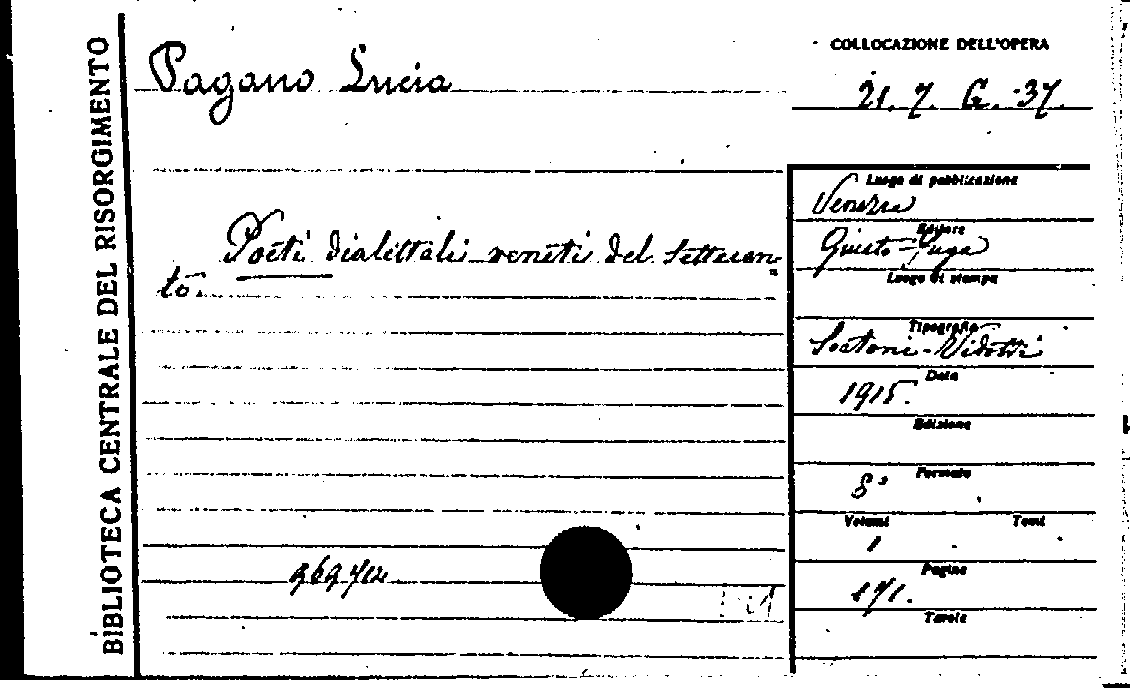 BIBLIOTECA CENTRALE DEL RISORGIMENTO
Pagano Lucia
COLLOCAZIONE DELL'OPERA
21. 7. G. 37.
Poeti dialettali veneti del Settecen=
to.
Luogo di pubblicazione
Venezia
Editore
Giusto Fuga
Luogo di stampa
Tipografia
Scatoni-Vidotti
Data
1915.
Edizione
Formato
8°
Volumi Tomi
1
Pagine
171.
Tavole